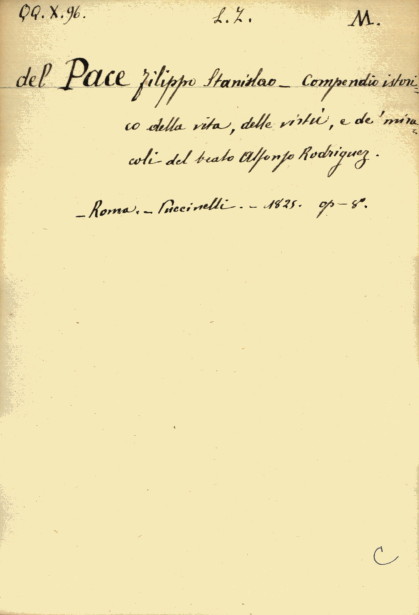 QQ.X.96. L.Z. M.
del Pace Filippo Stanislao _ Compendio istori=
co della vita, delle virtù, e de' mira=
coli del beato Alfonso Rodriguez.
_ Roma. _ Puccinelli. _ 1825. op _ 8°.
C